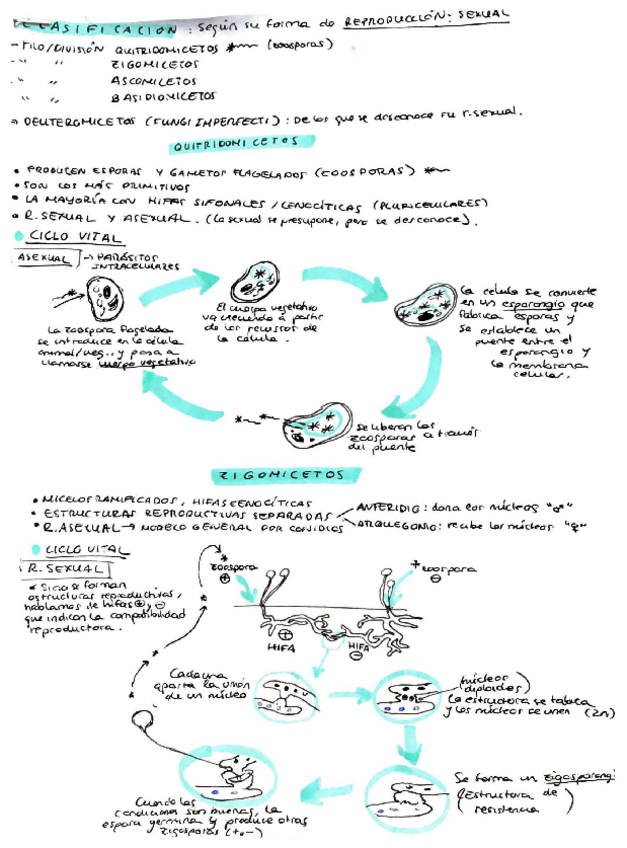 CLASIFICACIÓN : Según su forma de REPRODUCCIÓN: SEXUAL
- FILO/DIVISIÓN QUITRIDOMICETOS (zoosporas)
- " " ZIGOMICETOS
- " " ASCOMICETOS
" " BASIDIOMICETOS
→ DEUTEROMICETOS (FUNGI IMPERFECTI) : De los que se desconoce su r. sexual.
QUITRIDOMICETOS
• PRODUCEN ESPORAS Y GAMETOS FLAGELADOS (ZOOSPORAS)
• SON LOS MÁS PRIMITIVOS
• LA MAYORÍA CON HIFAS SIFONALES / CENOCÍTICAS (PLURICELULARES)
• R. SEXUAL Y ASEXUAL. (La sexual se presupone, pero se desconoce).
CICLO VITAL
ASEXUAL → PARÁSITOS
INTRACELULARES
La zoospora flagelada
se introduce en la célula
animal/veg.. y pasa a
llamarse cuerpo vegetativo
El cuerpo vegetativo
va creciendo a partir
de los recursos de
la célula.
La célula se convierte
en un esporangio que
fabrica esporas y
se establece un
puente entre el
esporangio y
la membrana
celular.
Se liberan las
zoosporas a través
del puente
ZIGOMICETOS
• MICELOS RAMIFICADOS, HIFAS CENOCÍTICAS
• ESTRUCTURAS REPRODUCTIVAS SEPARADAS
ANTERIDIO : dona los núcleos "♂"
ARQUEGONIO : recibe los núcleos "♀"
• R. ASEXUAL → MODELO GENERAL POR CONIDIOS
CICLO VITAL
R. SEXUAL
* Si no se forman
estructuras reproductivas,
hablamos de hifas ⊕ y ⊖
que indican la compatibilidad
reproductora.
zoospora
⊕
zoospora
⊖
⊕
HIFA
HIFA
⊖
Cada una
aporta la unión
de un núcleo
núcleos
diploides
La estructura se tabica
y los núcleos se unen (2n)
Se forma un zigosporangi
(Estructura de
resistencia)
Cuando las
condiciones son buenas, la
espora germina y produce otras
zigosporas (+ o -)